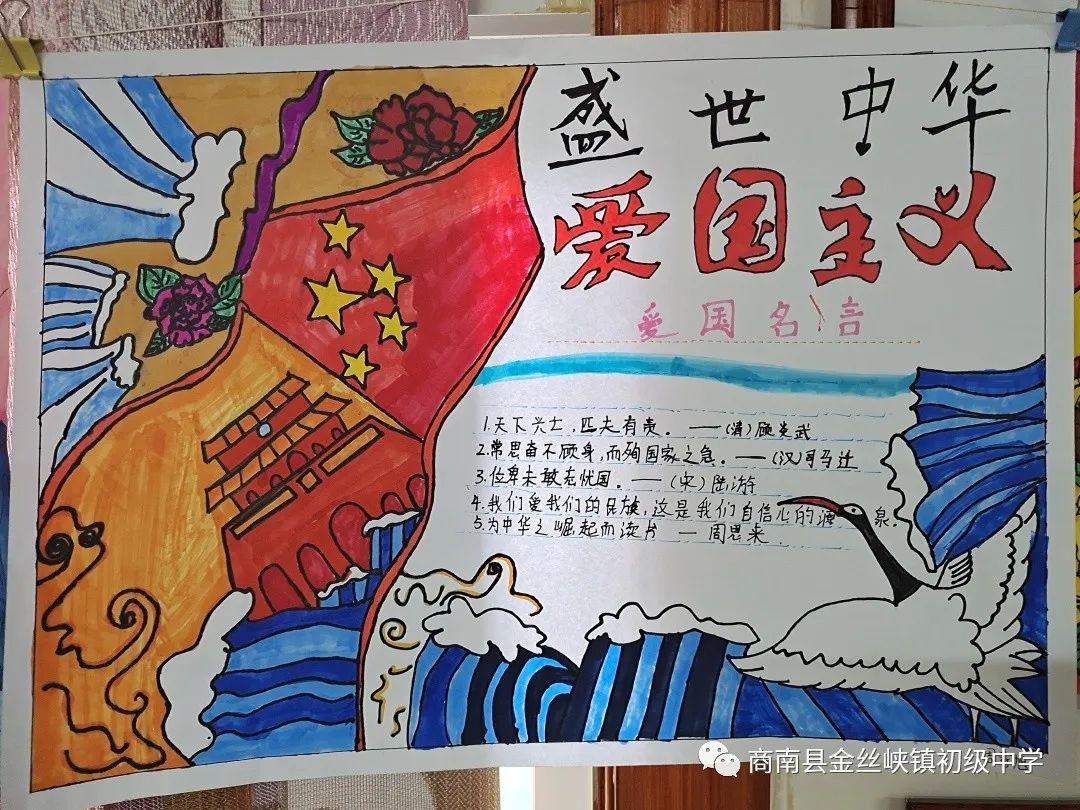 盛世中华
爱国主义
爱国名言
1.天下兴亡,匹夫有责。——(清)顾炎武
2.常思奋不顾身,而殉国家之急。——(汉)司马迁
3.位卑未敢忘忧国。——(宋)陆游
4.我们爱我们的民族,这是我们自信心的源泉。
5.为中华之崛起而读书 — 周恩来.
商南县金丝峡镇初级中学